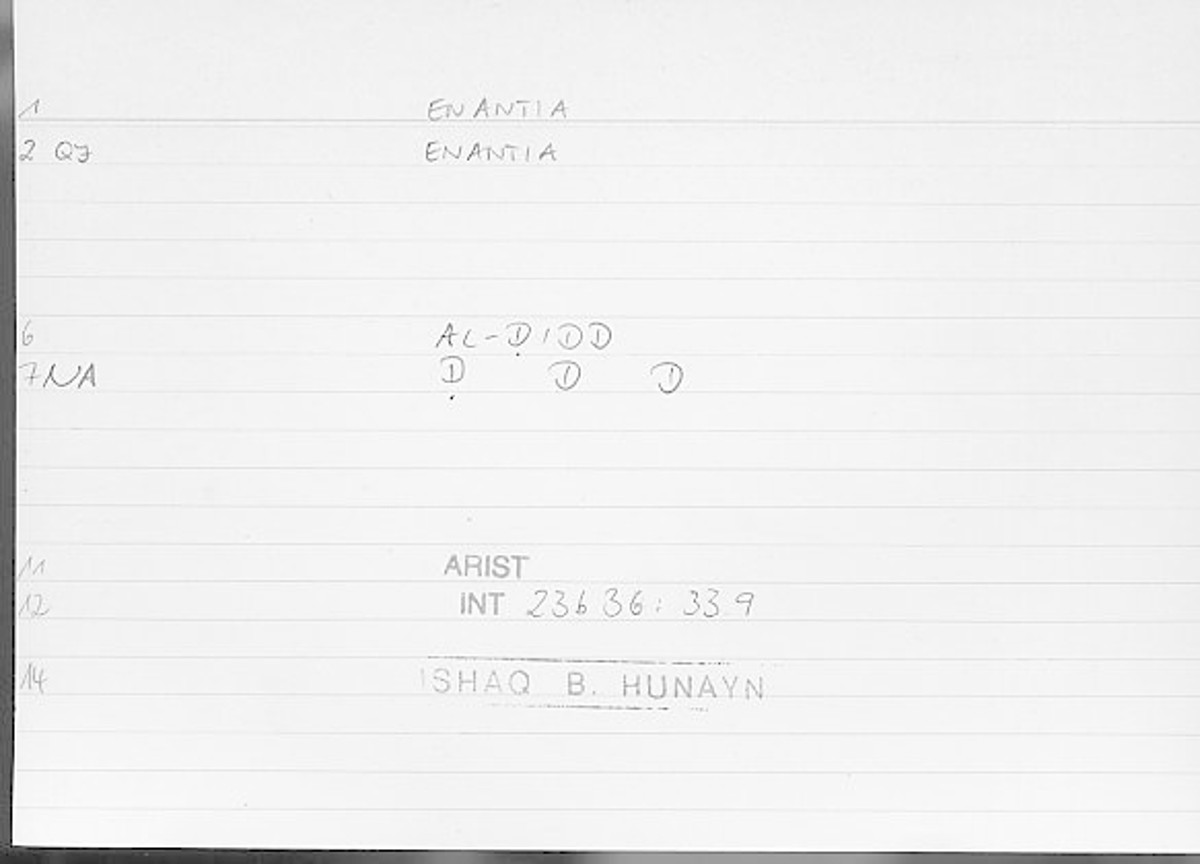 1 ENANTIA
2 QJ ENANTIA
6 AL-ḌIDD
7 NA Ḍ D D
11 ARIST
12 INT 23b36: 33 9
14 ISHAQ B. HUNAYN